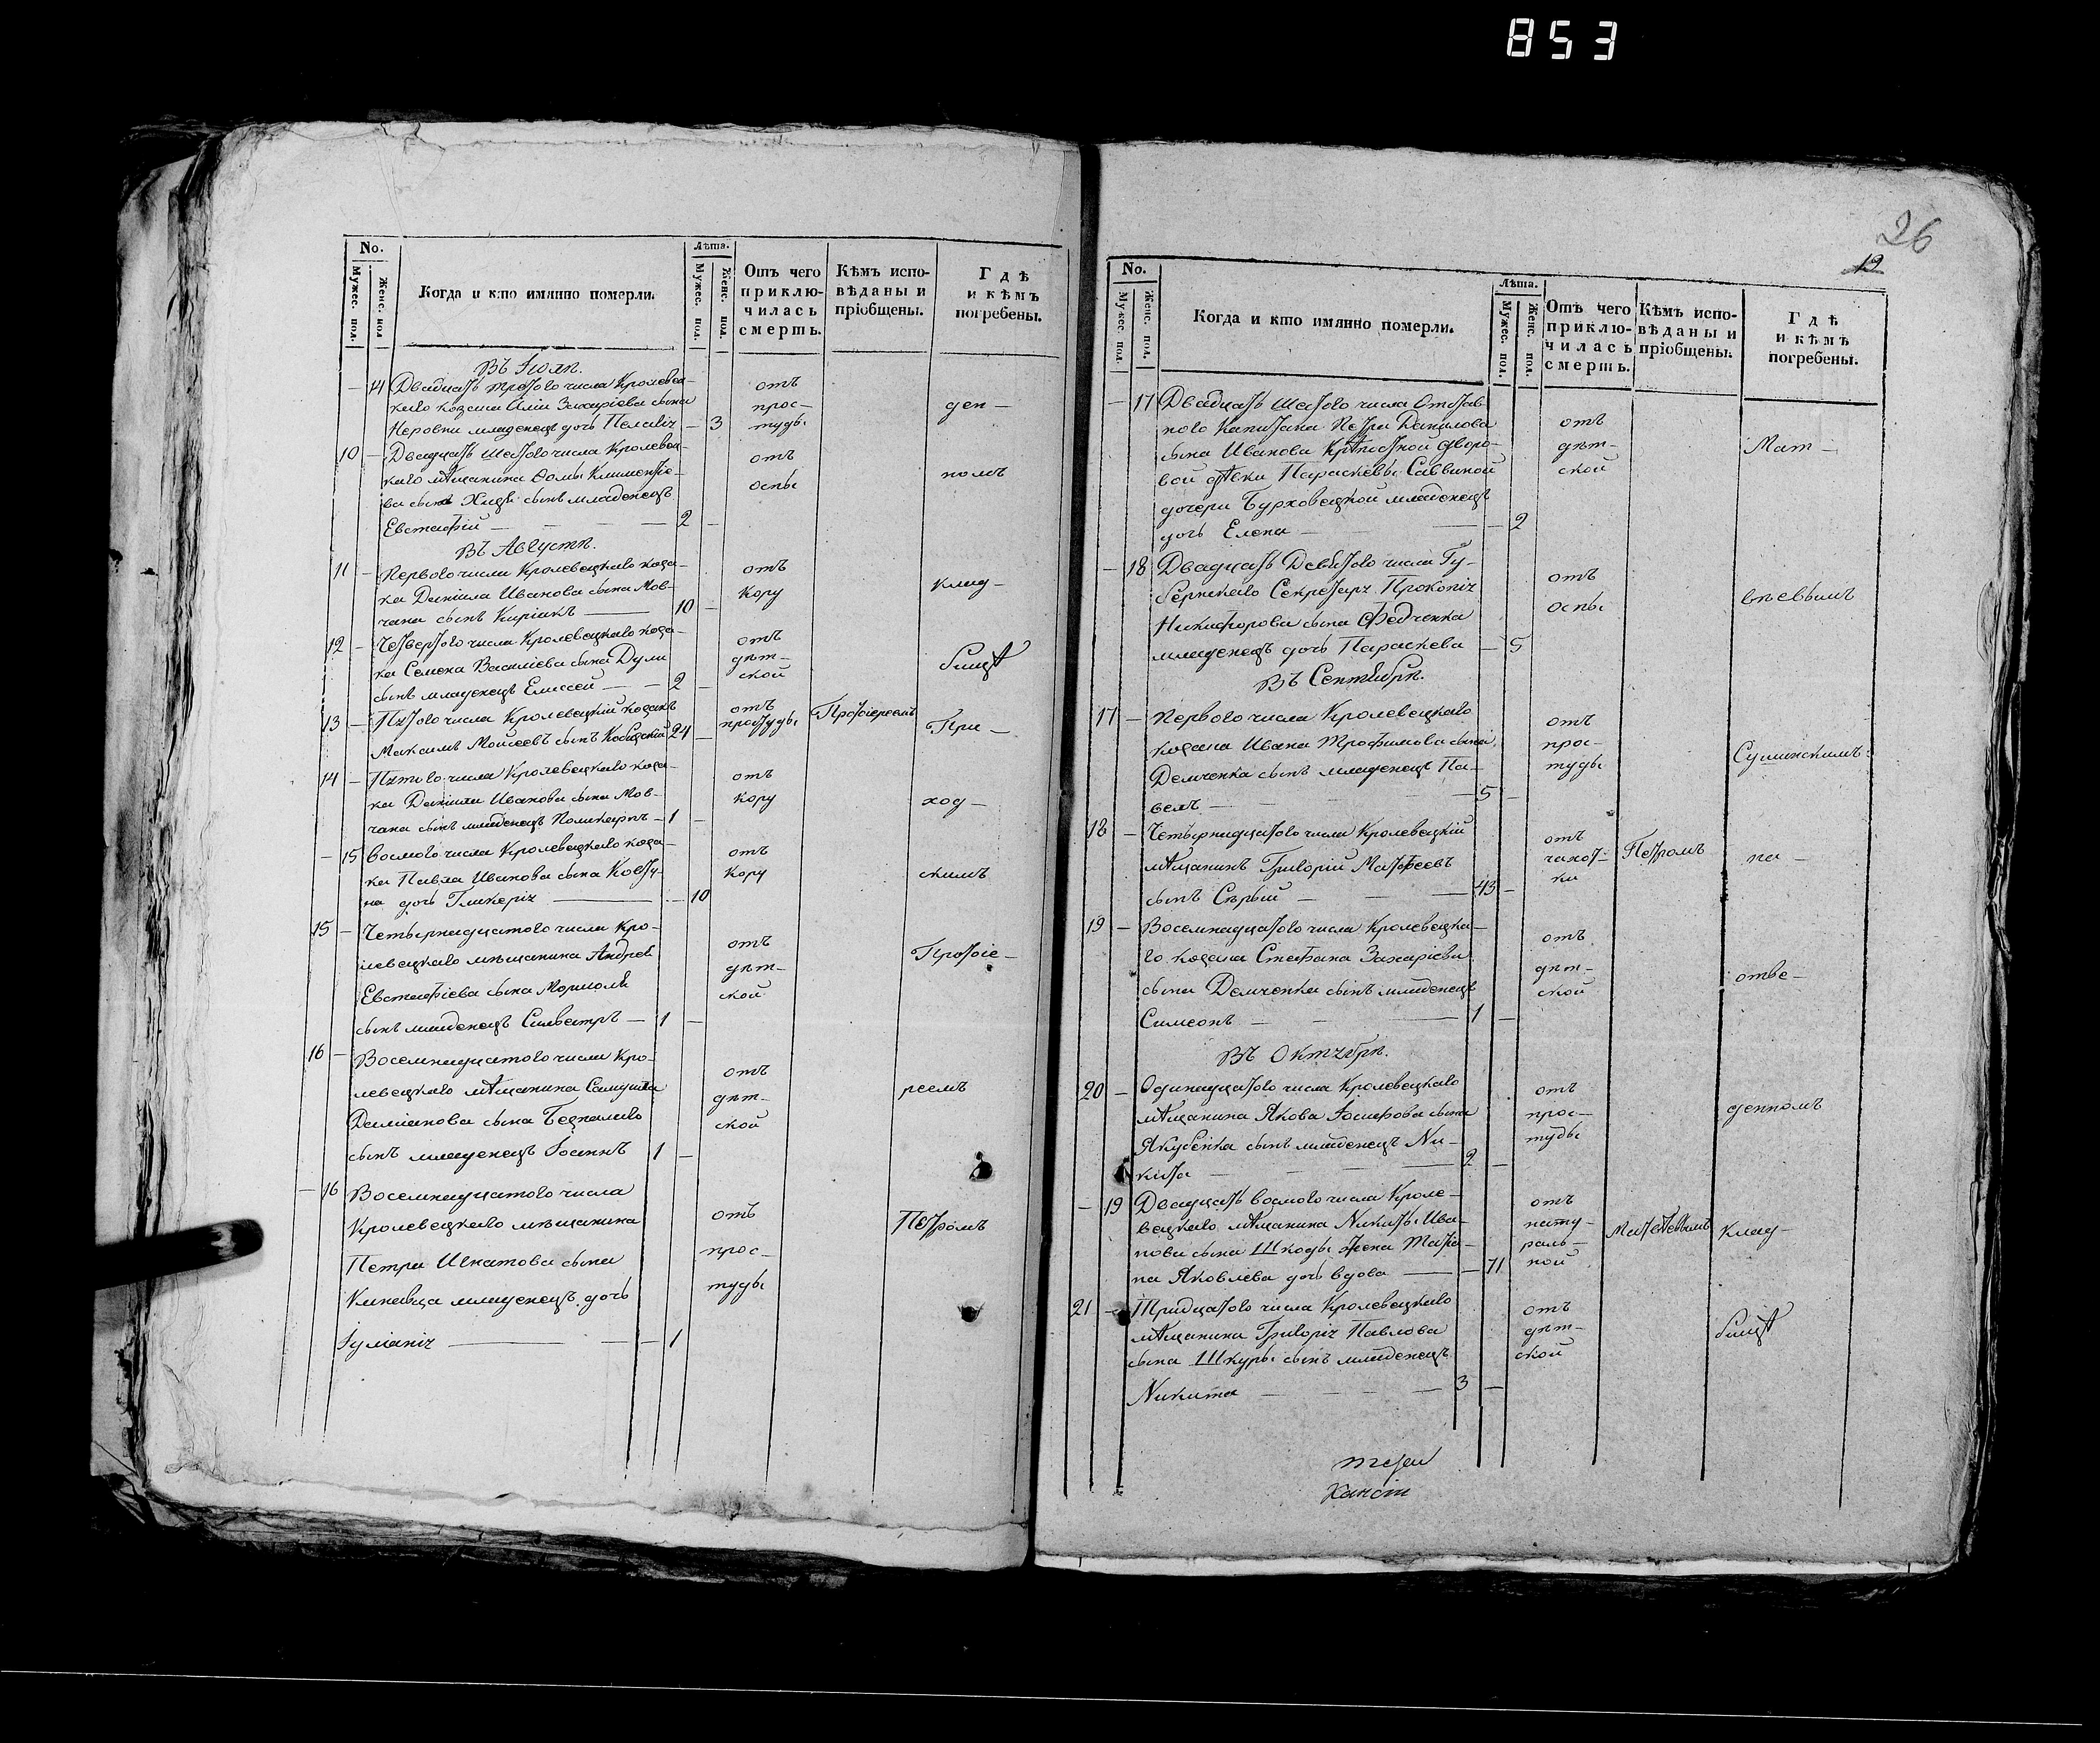 853
No.
Мужес. пол.
Женс. пол
Когда и кто имянно померли.
Лѣта.
Мужес. пол.
Женс. пол.
Отъ чего приключилась смерть.
Кѣмъ исповѣданы и пріобщены.
Гдѣ и кѣмъ погребены.
Въ Іюлѣ.
— 14 Двадцать третого числа Кролевец-
каго козака Иліи Захаріева сына
Неровни младенецъ дочь Пелагія — 3 отъ прос- туды ден —
10 — Двадцать шестого числа Кролевец-
каго мѣщанина Ѳомы Климентіе-
ва сына сынъ младенецъ
Евстафій — 2 — отъ оспы номъ
Въ Августѣ.
11 — Первого числа Кролевецкаго коза-
ка Даніила Иванова сына Мов-
чана сынъ Киріакъ — 10 — отъ кору клад —
12 — Четвертого числа Кролевецкаго коза-
ка Семена Василіева сына Дули
сынъ младенецъ Елисей — 2 — отъ дѣт- ской бищѣ
13 — Пятого числа Кролевецкій козакъ
Максимъ Моисеевъ сынъ 24 — отъ простуды Протоіереемъ При —
14 — Пятого числа Кролевецкаго коза-
ка Даніила Иванова сына Мов-
чана сынъ младенецъ Поликарпъ — 1 — отъ кору ход —
— 15 восмого числа Кролевецкаго коза-
ка Павла Иванова сына Ковту-
на дочь Гликерія — 10 отъ кору скимъ
15 — Четырнадцатого числа Кро-
левецкаго мѣщанина Андрея
Евстафіева сына
сынъ младенецъ Силвестръ — 1 — отъ дѣт- ской Протоіе —
16 — Восемнадцатого числа Кро-
левецкаго мѣщанина Самуила
Даміанова сына Безпалаго
сынъ младенецъ Іоаннъ 1 — отъ дѣт- ской реемъ
— 16 Восемнадцатого числа
Кролевецкаго мѣщанина
Петра Игнатова сына
младенецъ дочь
Іуліанія — 1 отъ прос- туды Петромъ
26
12
No.
Мужес. пол.
Женс. пол.
Когда и кто имянно померли.
Лѣта.
Мужес. пол.
Женс. пол.
Отъ чего приключилась смерть.
Кѣмъ исповѣданы и пріобщены.
Гдѣ и кѣмъ погребены.
— 17 Двадцать шестого числа Отстав-
ного Капитана Петра Данилова
сына Иванова крѣпостной дворо-
вой дѣвки Параскевы Саввиной
дочери Бурховецкой младенецъ
дочь Елена — 2 отъ дѣт- ской Мат —
— 18 Двадцать Девятого числа Гу-
бернскаго Секретаря Прокопія
Никифорова сына Федченка
младенецъ дочь Параскева — 5 отъ оспы вѣевымъ
Въ Сентябрѣ.
17 — Первого числа Кролевецкаго
козака Ивана Трофимова сына
Демченка сынъ младенецъ Па-
велъ — 5 — отъ прос- туды Сушинскимъ
18 — Четырнадцатого числа Кролевецкій
мѣщанинъ Григорій Матфеевъ
сынъ Сѣрый — 43 — отъ чахот- ки Петромъ на —
19 — Восемнадцатого числа Кролевецка-
го козака Стефана Захаріева
сына Демченка сынъ младенецъ
Симеонъ — 1 — отъ дѣт- ской отве —
Въ Октябрѣ.
20 — Одинадцатого числа Кролевецкаго
мѣщанина Якова Іосифова сына
Якубенка сынъ младенецъ Ни-
кита — 2 — отъ прос- туды денномъ
— 19 Двадцать восмого числа Кроле-
вецкаго мѣщанина Никиты Ива-
нова сына Шкоды жена Татія-
на Яковлева дочь вдова — 71 отъ нату- раль- ной Матвѣевымъ клад —
21 — Тридцатого числа Кролевецкаго
мѣщанина Григорія Павлова
сына Шкуры сынъ младенецъ
Никита — 3 — отъ дѣт- ской бищѣ